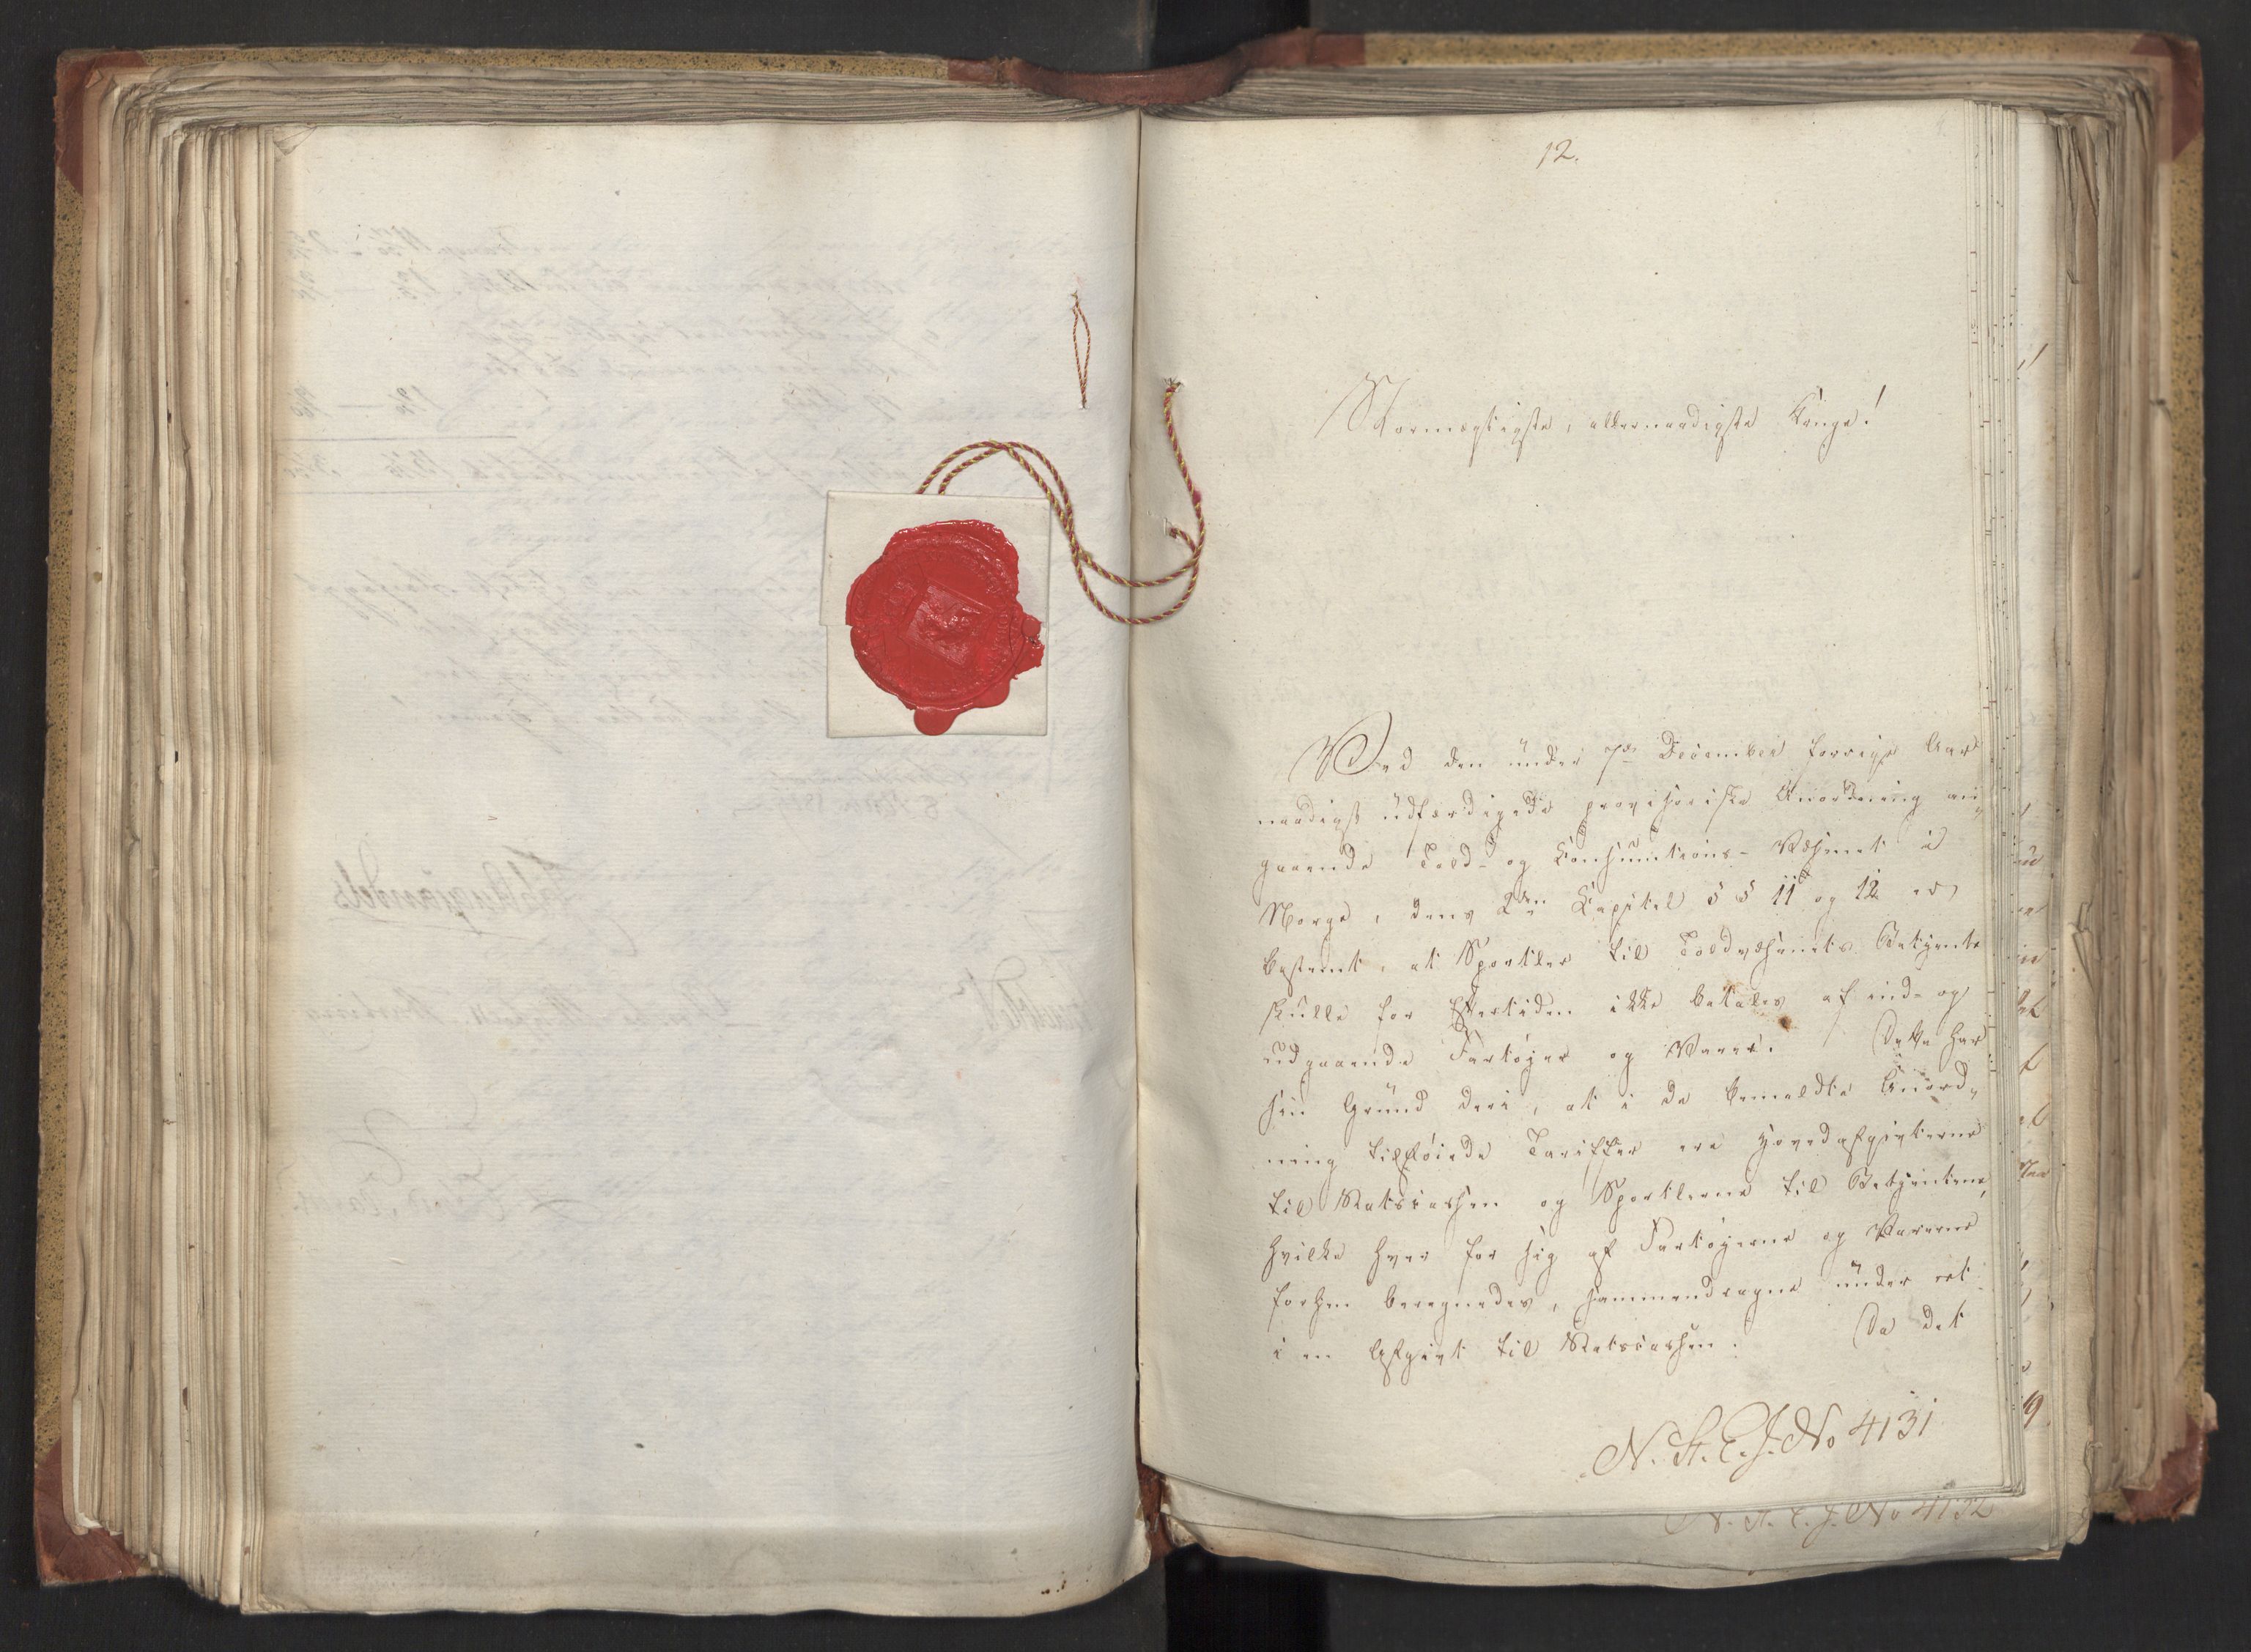 12.
Stormægtigste, allernaadigste Konge!
Ved den under 7de December forrige Aar
naadigst udfærdigede provisoriske Anordning an-
gaaende Told- og Consumtions-Væsenet i
Norge, dens 2den Capitel §§ 11 og 12 er
bestemt, at Sportler til Toldvæsenets Betjente
skulle for Eftertiden ikke betales af ind- og
udgaaende Fartøjer og Varer. Dette har
sin Grund deri, at i de bemeldte Anord-
ning tilføiede Tariffer ere Hovedafgivterne
til Statscassen og Sportlerne til Betjentene,
hvilke hver for sig af Fartøjerne og Varerne
forhen beregnedes, sammendragne under eet
i en Afgivt til Statscassen. Da det
N. St. E. J. No 4131
N. St. E. J. No 4132